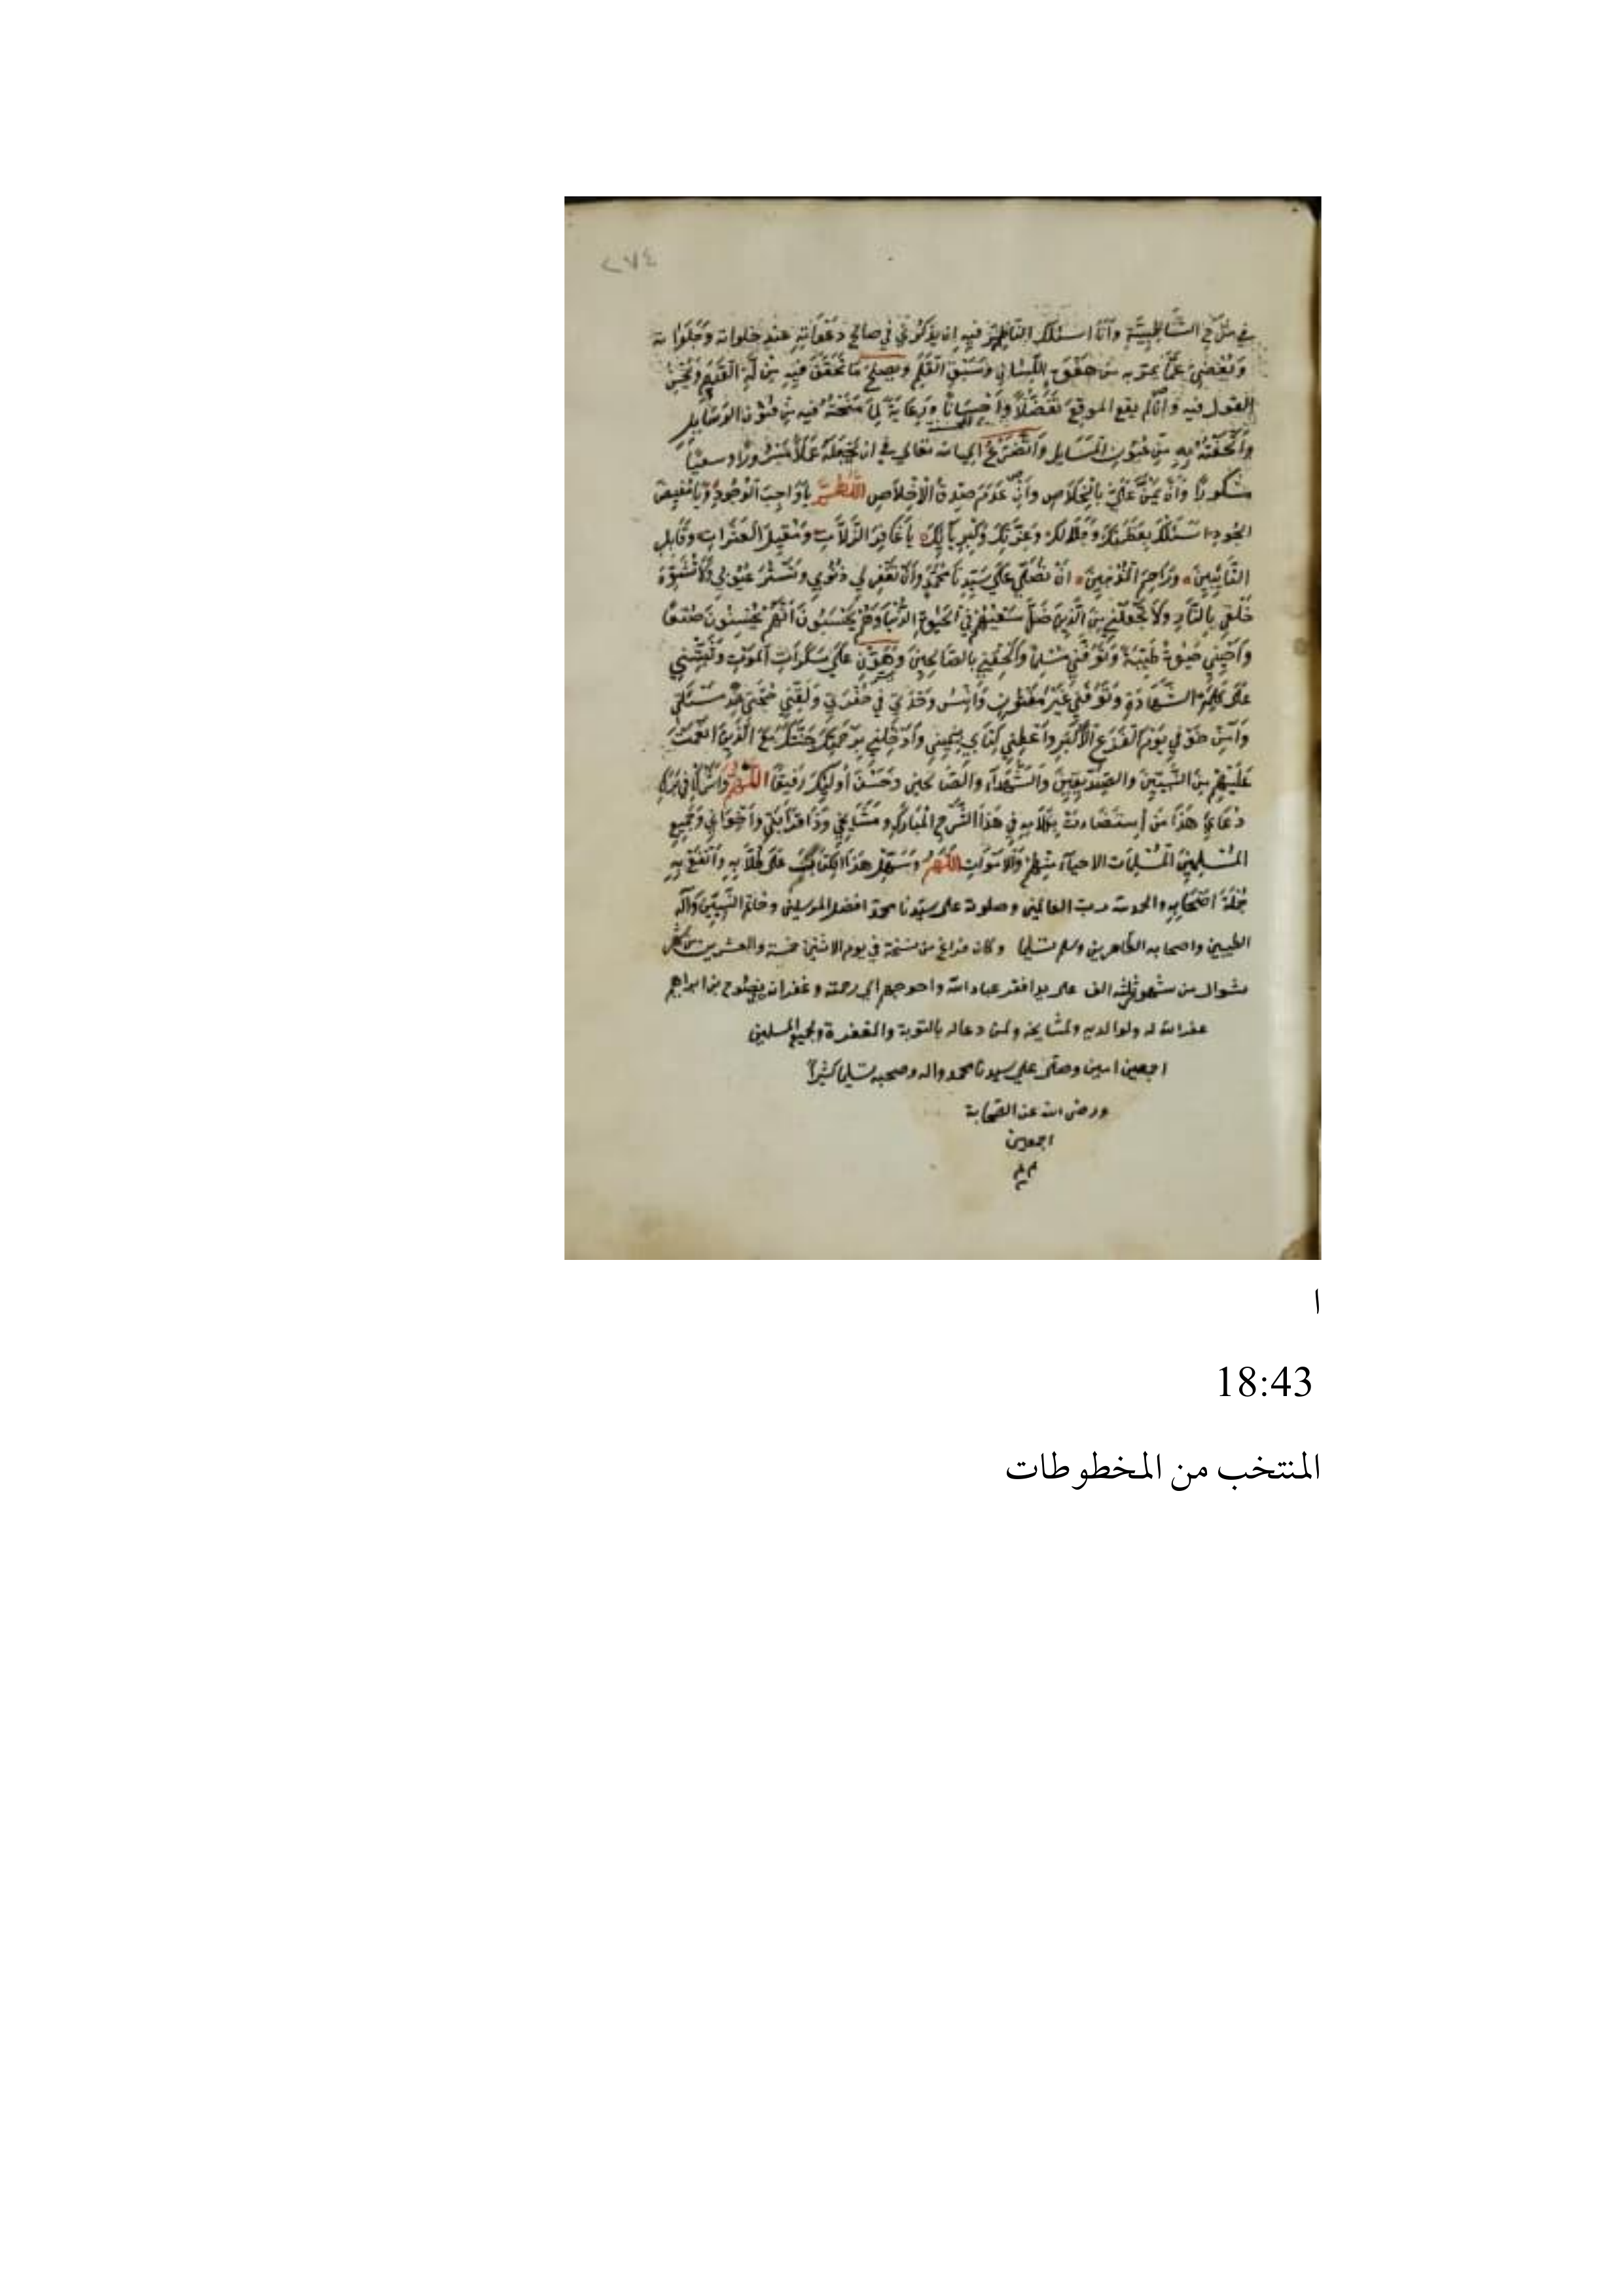 ٢٧٤
في شرح الشاطبية وَأنَا اسئلك النّاظِر فيهِ ان يذكُرني في صالح دَعَواتِهِ عند خلواته وَجَلَوَاته
وَيُغْضِيَ عَمَّا يمرّ به من اللِّسَانِ وَسَبْقِ القَلَمِ ويصلح مَا تحَقّقَ فِيهِ
القول فيه وَانْ لم يقع الموقِعَ تَفَضُّلاً وَاِحْسَانًا وَرِعَايَةً لِمَا مَنَحْتُهُ فيه مِنْ فنُوْن الوَسَايِلِ
وَأَتْحَفْتُهُ بِهِ مِنْ عُيُونِ المَسَايِلِ وَاَتَضَرَّعُ الى الله تعَالى في ان يَجْعَلَهُ عَمَلاً مَبْرُورًا وسعيًا
مشكورًا وَاَنْ يَمُنَّ عَلَيَّ بِالْخَلَاصِ صِدْقَ الْاِخْلَاصِ اللّهُمَّ يَا وَاجِبَ الْوُجُودِ وَيَا مُفِيضَ
الجُودِ اَسْئَلُكَ بِعَظَمَتِكَ وَجَلَالِكَ وَعِزَّتِكَ وَكِبْرِيَائِكَ يَا غَافِرَ الزَّلَّاتِ وَمُقِيلَ الْعَثَرَاتِ وَقَابِلَ
التَّائِبِينَ وَرَاحِمَ الْمُذْنِبِينَ اَنْ تُصَلِّي عَلَى سَيِّدِنَا مُحَمَّدٍ وَاَنْ تَغْفِرَ لِي ذُنُوْبِي وَتَسْتُرَ عُيُوْبِي وَلَا تُشَوِّهَ
خَلْقِي بِالنَّارِ وَلَا تَجْعَلْنِي مِنَ الَّذِينَ ضَلَّ سَعْيُهُمْ فِي الْحَيٰوةِ الدُّنْيَا وَهُمْ يَحْسَبُونَ اَنَّهُمْ يُحْسِنُونَ صُنْعًا
وَاَحْيِنِي حَيٰوةً طَيِّبَةً وَتَوَفَّنِي مُسْلِمًا وَاَلْحِقْنِي بِالصَّالِحِينَ وَهَوِّنْ عَلَيَّ سَكَرَاتِ الْمَوْتِ وَثَبِّتْنِي
عَلَى كَلِمَةِ الشَّهَادَةِ وَتَوَفَّنِي غَيْرَ مَفْتُونٍ وَاٰنِسْ وَحْدَتِي فِي حُفْرَتِي وَلَقِّنِّي حُجَّتِي عِنْدَ مَسْئَلَتِي
وَاٰمِنْ خَوْفِي يَوْمَ الْفَزَعِ الْاَكْبَرِ وَاَعْطِنِي كِتَابِي بِيَمِينِي وَاَدْخِلْنِي بِرَحْمَتِكَ جَنَّتَكَ مَعَ الَّذِينَ اَنْعَمْتَ
عَلَيْهِمْ مِنَ النَّبِيِّينَ وَالصِّدِّيقِينَ وَالشُّهَدَاءِ وَالصَّالحين وَحَسُنَ أُولَئِكَ رَفِيقًا اللّهُمَّ وَاَشْرِكْ في بَرَكَةِ
دُعَائِي هَذَا مَن اِسْتَضَاءَتْ به في هَذَا الشَّرْحِ المُبَارَكِ وَمَشَايِخِي وَذَا قَرَابَتِي وَاِخْوَانِي وَجَمِيعِ
المُسْلِمِينَ المُسْلِمَاتِ الاحياءِ مِنْهُمْ وَالْاَمْوَاتِ اللّهُمَّ وَسَهِّلْ هَذَا الْكِتَابَ عَلَى طُلَّابِهِ وَانْفَعْ بِهِ
جُمْلَةَ اَصْحَابِهِ والحمد لله رب العالمين وصلوته على سيّدنا محمد افضل المرسلين وخاتم النّبيّين وَآله
الطيبين واصحابه الطاهرين وسلم تسليما وكان فراغ من نسخة في يوم الاثنين خمسة والعشرين من شهر
شوال من شهور الف على يد افقر عباد الله واحوجهم الى رحمته وغفرانه بن ابراهيم
غفر الله له ولوالديه ولمشايخه ولمن دعا له بالتوبة والمغفرة ولجميع المسلمين
اجمعين امين وصلى على سيدنا محمد واله وصحبه تسليما كثيرًا
ورضى الله عن الصّحابة
اجمعين
ا
18:43
المنتخب من المخطوطات